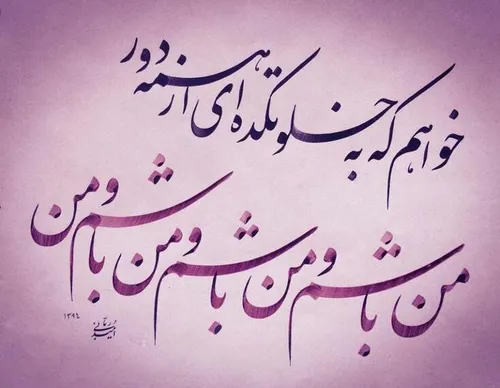 خواهم که به خلوتکده‌ای از همه دور
من باشم و من باشم و من باشم و من
۱۳۹٤